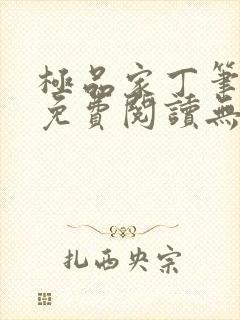 極品家丁筆
免費閱讀無
扎西央宗